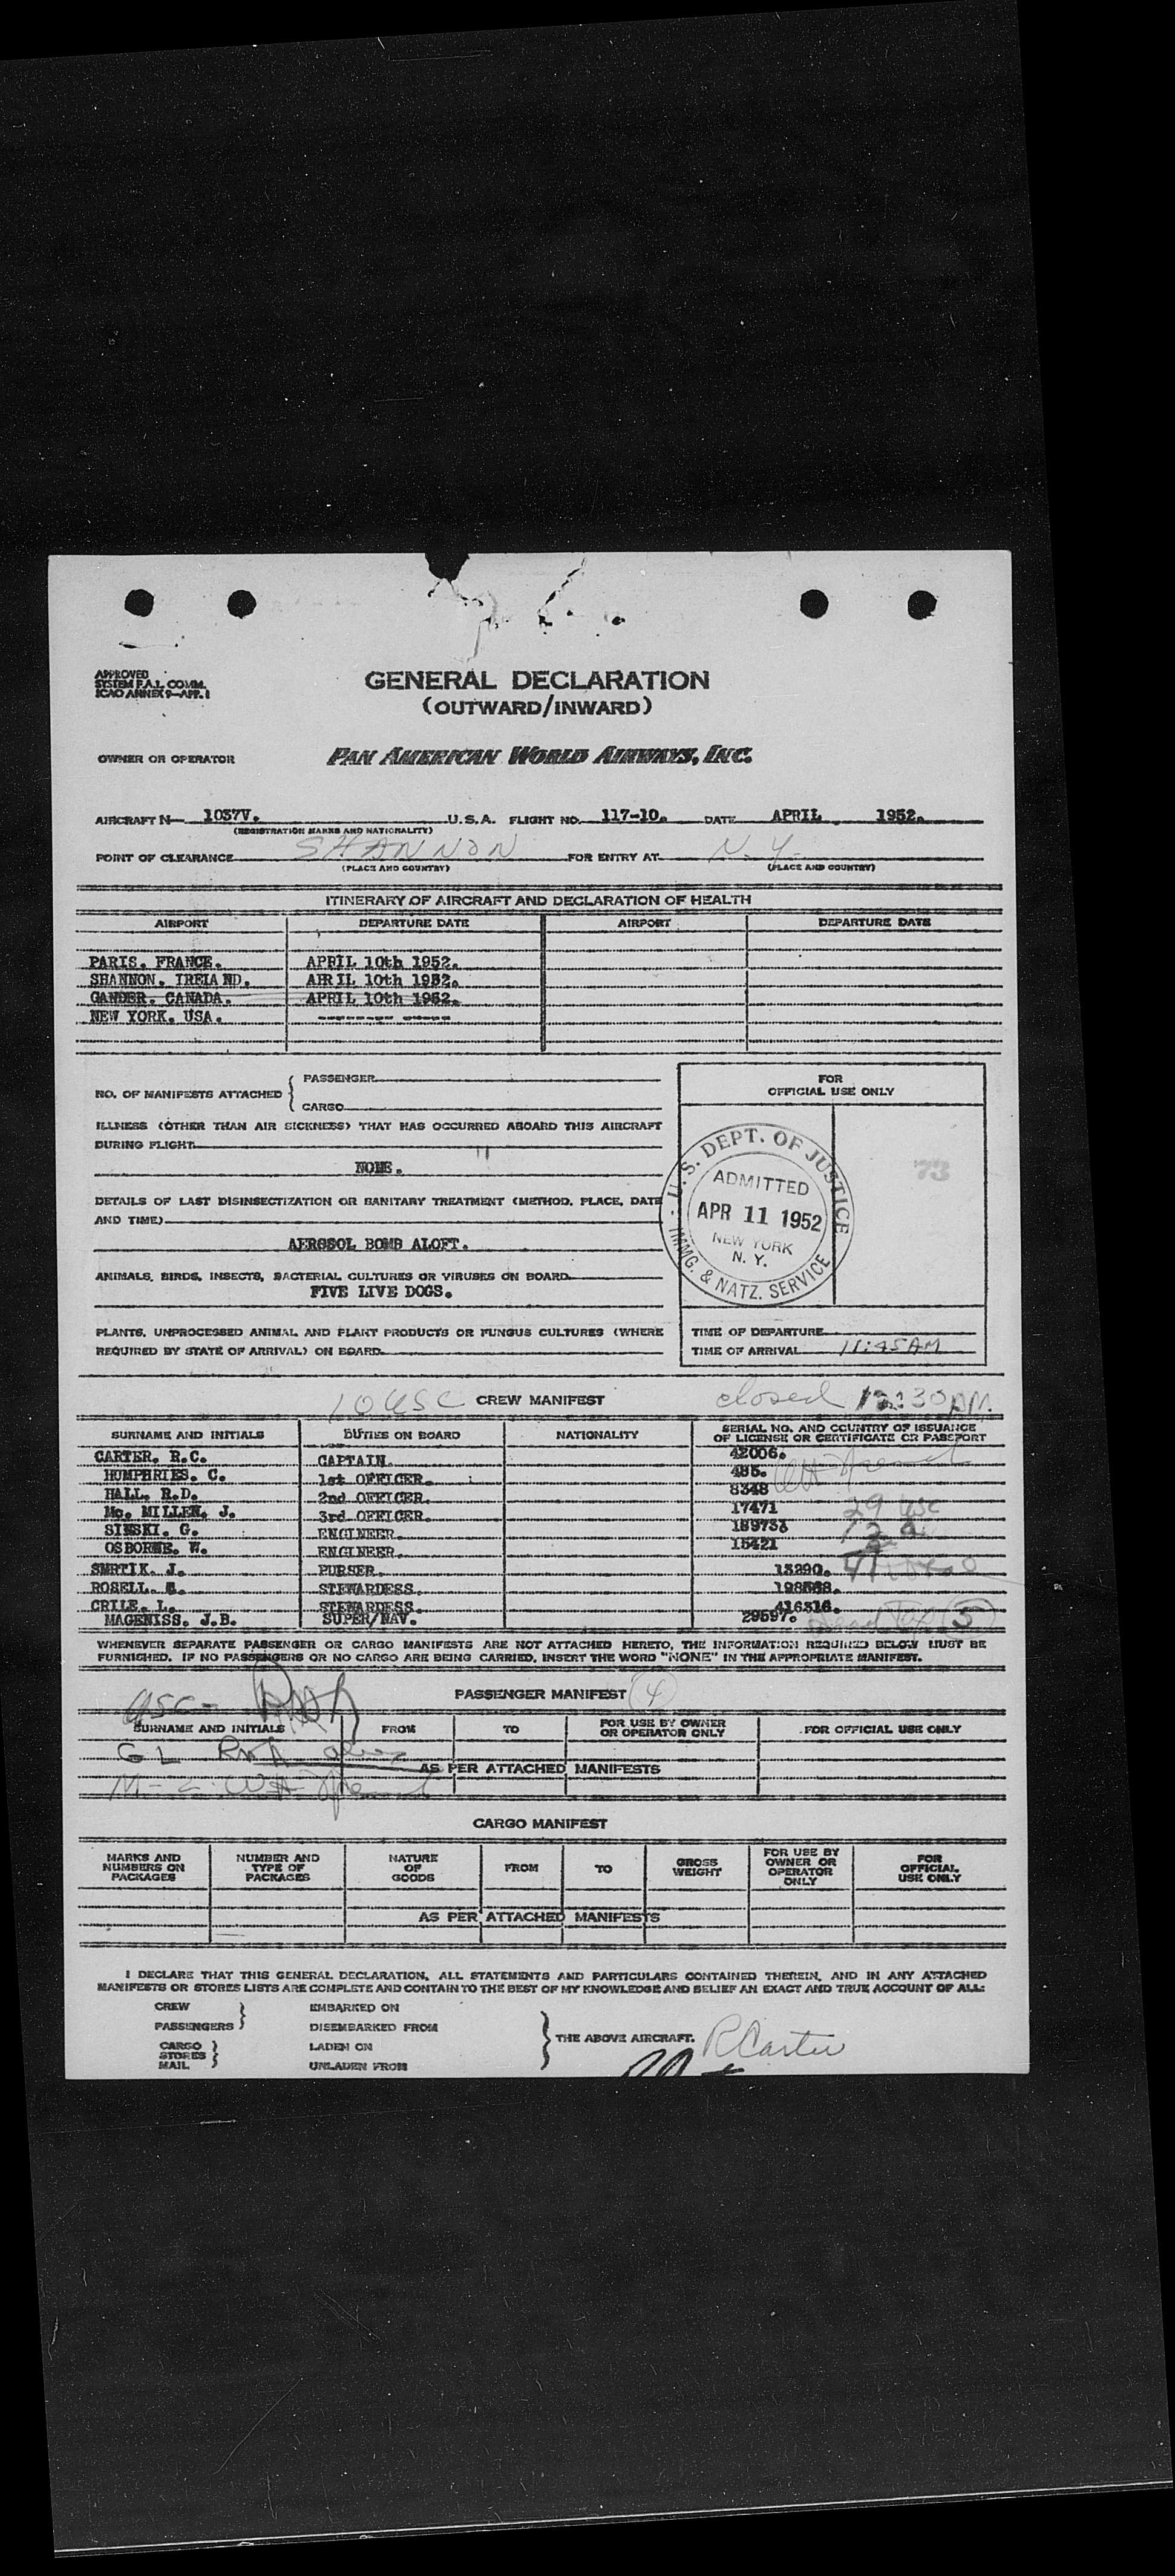 APPROVED
SYSTEM F.A.L. COMM.
ICAO ANNEX 9—APP. 1
GENERAL DECLARATION
(OUTWARD/INWARD)
OWNER OR OPERATOR PAN AMERICAN WORLD AIRWAYS, INC.
AIRCRAFT N— 1037V. U.S.A. FLIGHT NO. 117-10. DATE APRIL 1952.
(REGISTRATION MARKS AND NATIONALITY)
POINT OF CLEARANCE SHANNON FOR ENTRY AT N.Y.
(PLACE AND COUNTRY) (PLACE AND COUNTRY)
ITINERARY OF AIRCRAFT AND DECLARATION OF HEALTH
AIRPORT DEPARTURE DATE AIRPORT DEPARTURE DATE
PARIS. FRANCE. APRIL 10th 1952.
SHANNON. IRELAND. APRIL 10th 1952.
GANDER. CANADA. APRIL 10th 1952.
NEW YORK. USA. ------- -----
NO. OF MANIFESTS ATTACHED { PASSENGER
CARGO
ILLNESS (OTHER THAN AIR SICKNESS) THAT HAS OCCURRED ABOARD THIS AIRCRAFT
DURING FLIGHT
NONE.
DETAILS OF LAST DISINSECTIZATION OR SANITARY TREATMENT (METHOD, PLACE, DATE
AND TIME)
AEROSOL BOMB ALOFT.
ANIMALS, BIRDS, INSECTS, BACTERIAL CULTURES OR VIRUSES ON BOARD
FIVE LIVE DOGS.
PLANTS, UNPROCESSED ANIMAL AND PLANT PRODUCTS OR FUNGUS CULTURES (WHERE
REQUIRED BY STATE OF ARRIVAL) ON BOARD
FOR
OFFICIAL USE ONLY
73
U.S. DEPT. OF JUSTICE
ADMITTED
APR 11 1952
NEW YORK
N. Y.
IMMG. & NATZ. SERVICE
TIME OF DEPARTURE
TIME OF ARRIVAL 11:45AM
10 USC CREW MANIFEST closed 12:30 PM.
SURNAME AND INITIALS DUTIES ON BOARD NATIONALITY SERIAL NO. AND COUNTRY OF ISSUANCE
OF LICENSE OR CERTIFICATE OR PASSPORT
CARTER. R.C. CAPTAIN. 42006.
HUMPHRIES. C. 1st OFFICER. 485.
HALL. R.D. 2nd OFFICER. 8348
Mc. MILLEN. J. 3rd OFFICER. 17471 29 USC
SINSKI. G. ENGINEER. 12 a
OSBORNE. W. ENGINEER. 15421
SMRTIK. J. PURSER. 13290. 41
ROSELL. STEWARDESS.
CRILE. L. STEWARDESS. 416316.
MAGENISS. J.B. SUPER/NAV. 29597. 5
WHENEVER SEPARATE PASSENGER OR CARGO MANIFESTS ARE NOT ATTACHED HERETO, THE INFORMATION REQUIRED BELOW MUST BE
FURNISHED. IF NO PASSENGERS OR NO CARGO ARE BEING CARRIED, INSERT THE WORD "NONE" IN THE APPROPRIATE MANIFEST.
USC - PASSENGER MANIFEST 4
SURNAME AND INITIALS FROM TO FOR USE BY OWNER
OR OPERATOR ONLY FOR OFFICIAL USE ONLY
G L
AS PER ATTACHED MANIFESTS
CARGO MANIFEST
MARKS AND
NUMBERS ON
PACKAGES NUMBER AND
TYPE OF
PACKAGES NATURE
OF
GOODS FROM TO GROSS
WEIGHT FOR USE BY
OWNER OR
OPERATOR
ONLY FOR
OFFICIAL
USE ONLY
AS PER ATTACHED MANIFESTS
I DECLARE THAT THIS GENERAL DECLARATION, ALL STATEMENTS AND PARTICULARS CONTAINED THEREIN, AND IN ANY ATTACHED
MANIFESTS OR STORES LISTS ARE COMPLETE AND CONTAIN TO THE BEST OF MY KNOWLEDGE AND BELIEF AN EXACT AND TRUE ACCOUNT OF ALL:
CREW EMBARKED ON
PASSENGERS DISEMBARKED FROM
CARGO LADEN ON
STORES
MAIL UNLADEN FROM
THE ABOVE AIRCRAFT. R Carter